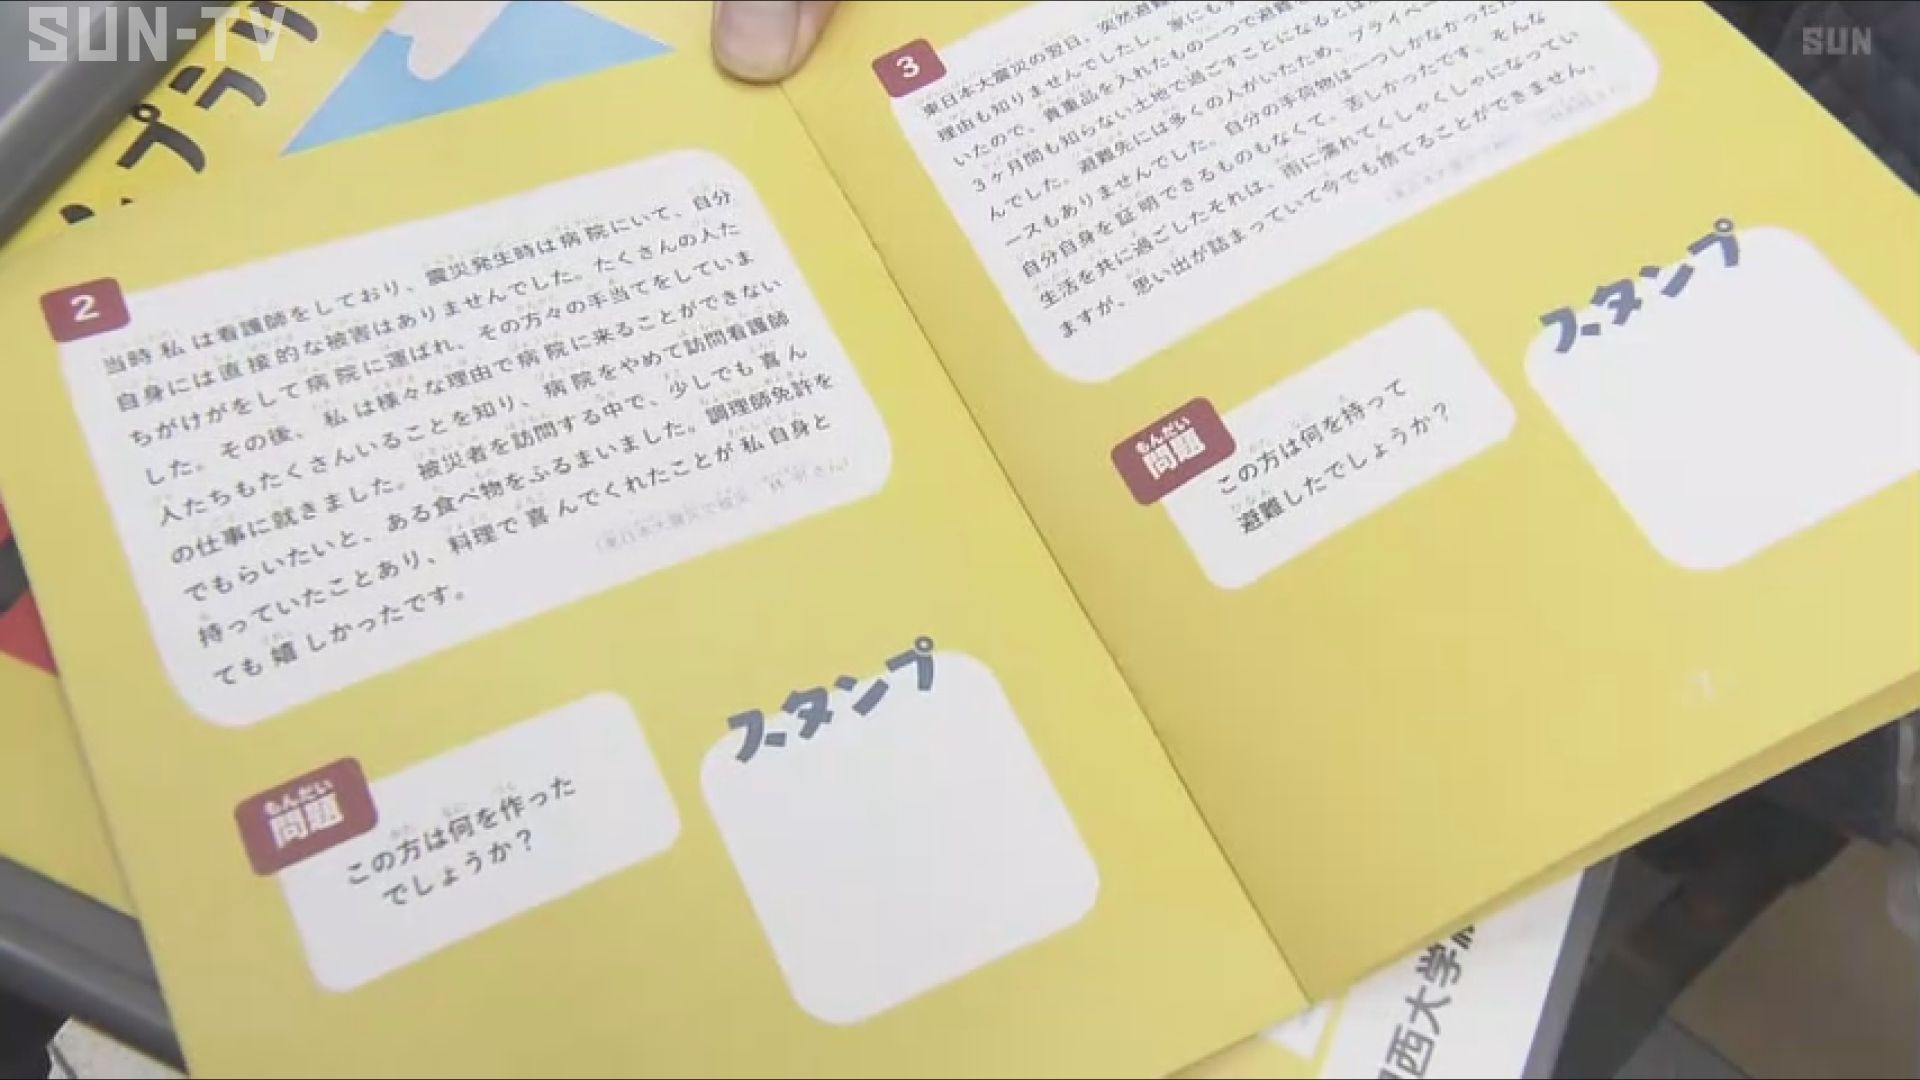 SUN-TV
SUN
プラリ
2
当時私は看護師をしており、震災発生時は病院にいて、自分
自身には直接的な被害はありませんでした。たくさんの人た
ちがけがをして病院に運ばれ、その方々の手当てをしていま
した。その後、私は様々な理由で病院に来ることができない
人たちもたくさんいることを知り、病院をやめて訪問看護師
の仕事に就きました。被災者を訪問する中で、少しでも喜ん
でもらいたいと、ある食べ物をふるまいました。調理師免許を
持っていたことあり、料理で喜んでくれたことが私自身と
ても嬉しかったです。
もんだい
問題
この方は何を作った
でしょうか?
スタンプ
3
東日本大震災の翌日、突然避難
理由も知りませんでしたし、家にもす
いたので、貴重品を入れたもの一つで避難
3ヶ月間も知らない土地で過ごすことになるとは
んでした。避難先には多くの人がいたため、プライベー
ースもありませんでした。自分の手荷物は一つしかなかったた
自分自身を証明できるものもなくて、苦しかったです。そんな
生活を共に過ごしたそれは、雨に濡れてくしゃくしゃになってい
ますが、思い出が詰まっていて今でも捨てることができません。
もんだい
問題
この方は何を持って
避難したでしょうか?
スタンプ
西大学